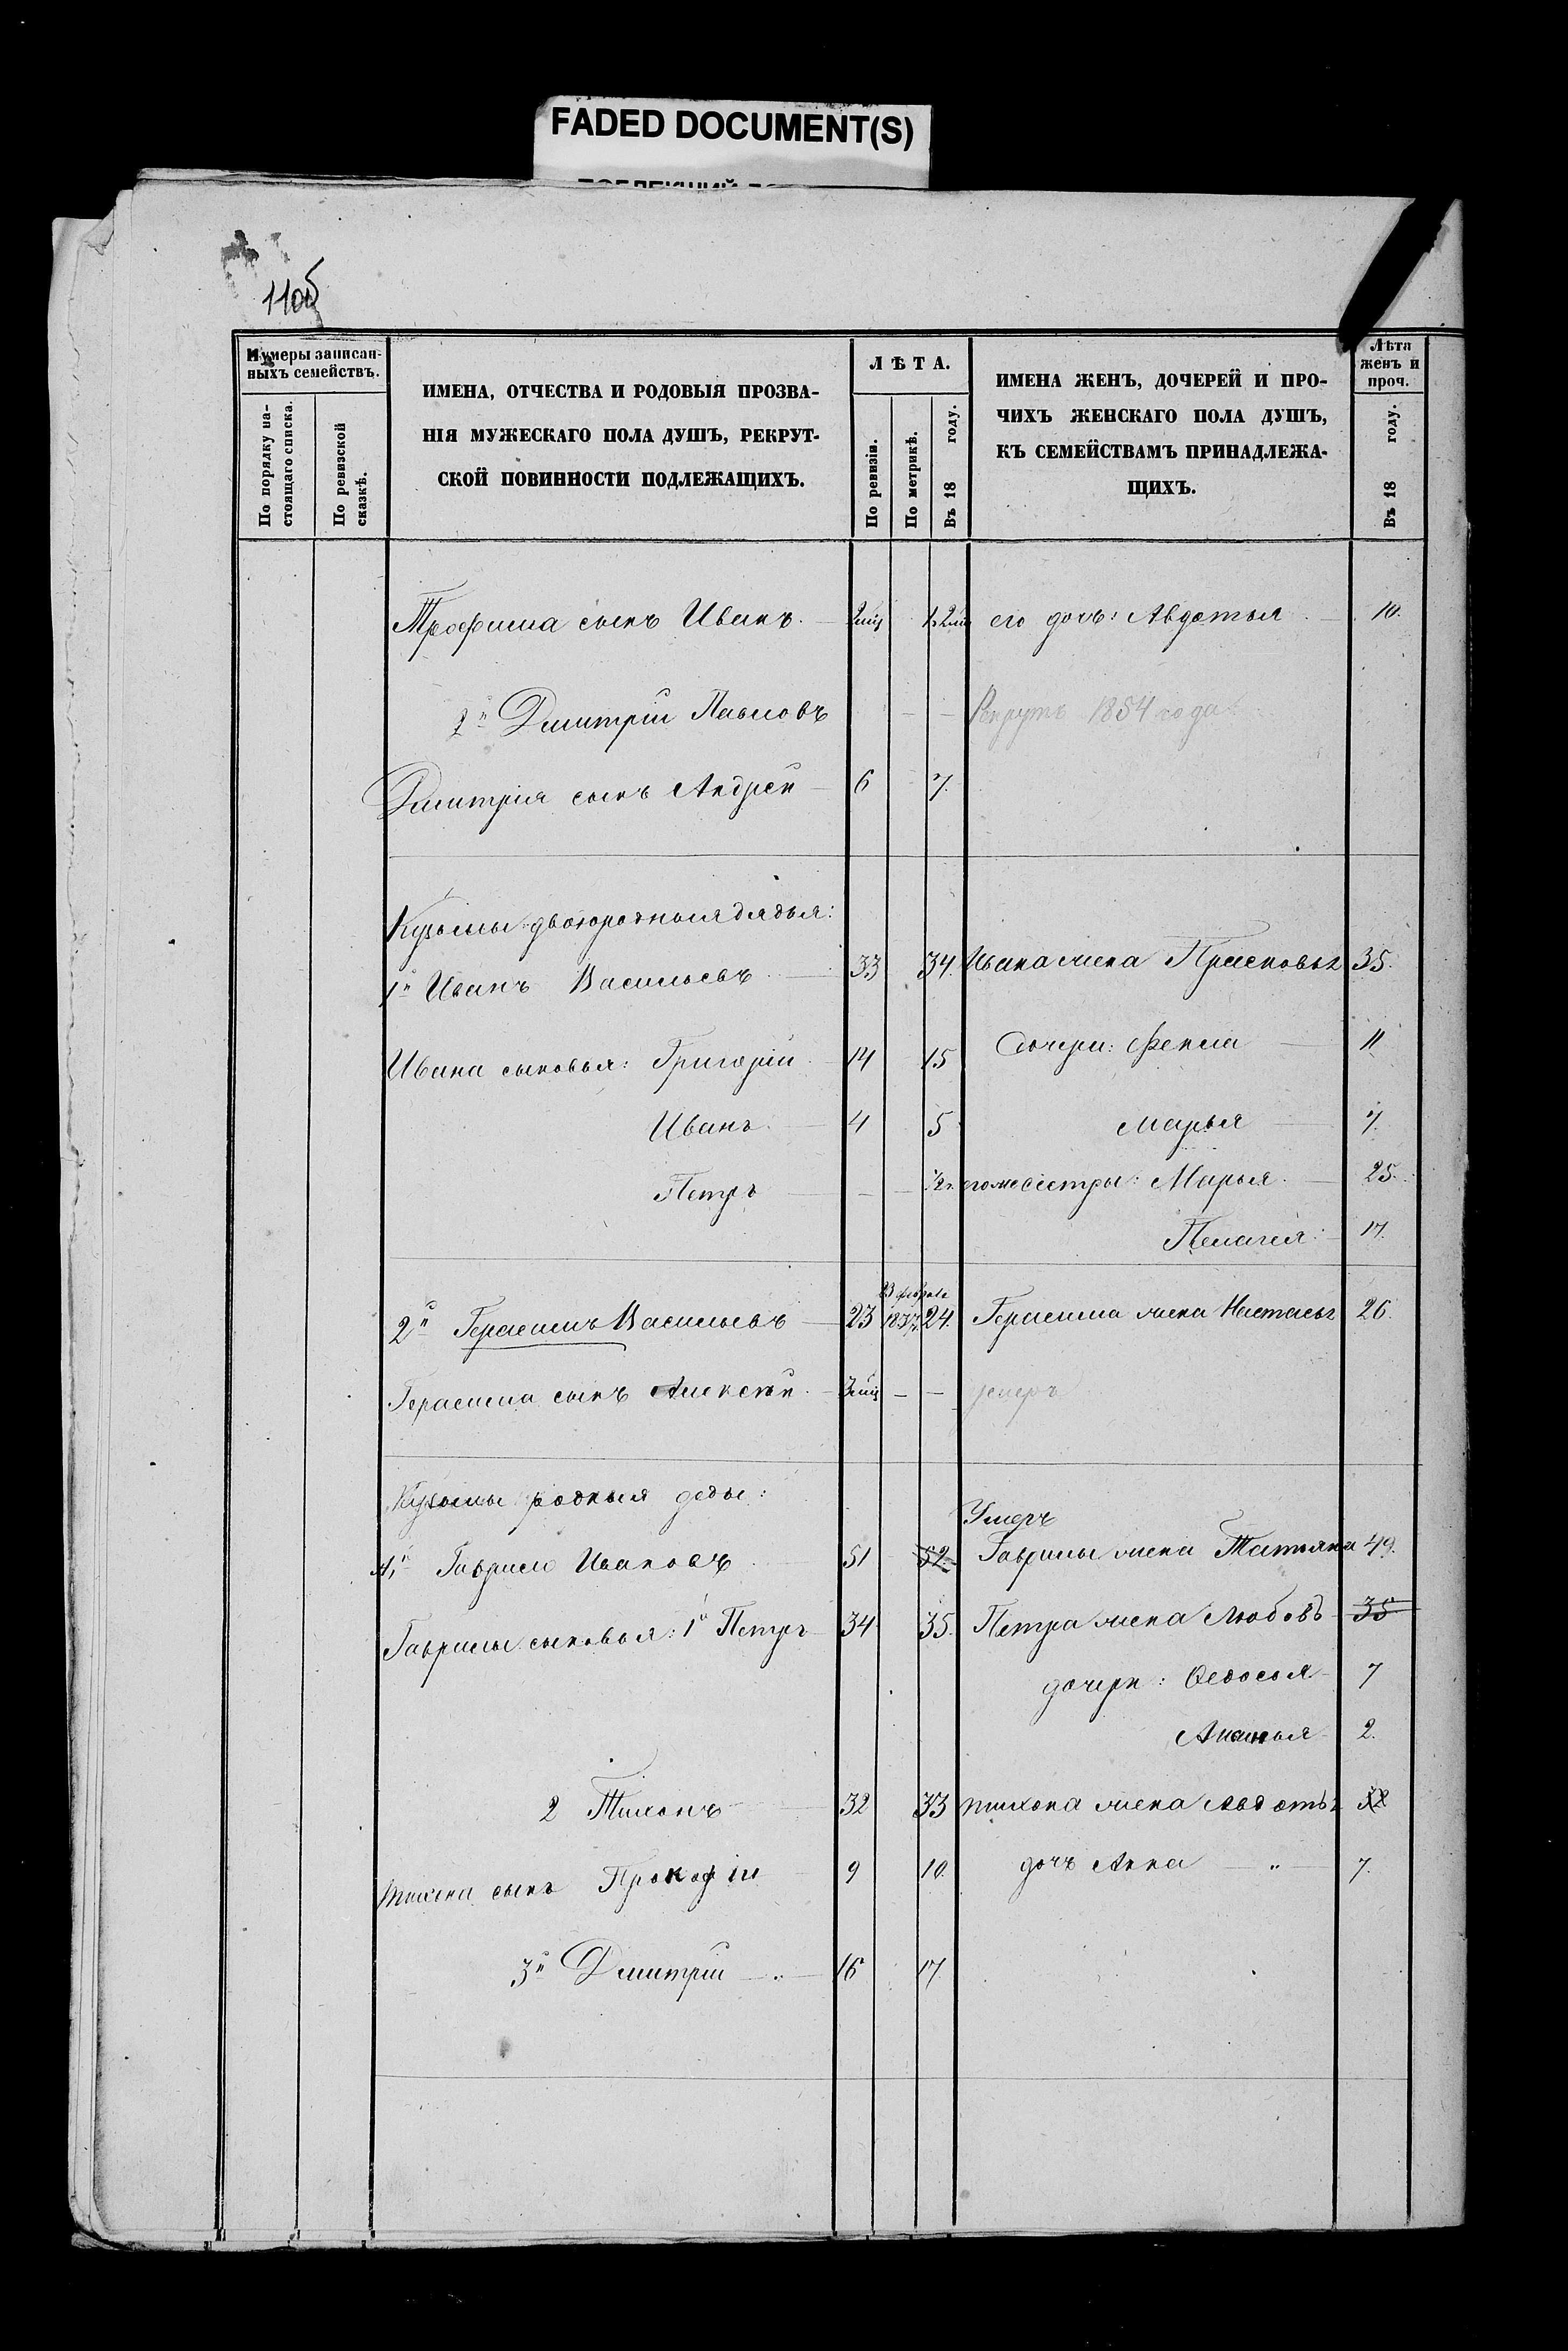 FADED DOCUMENT(S)
110об
Нумеры записан-
ныхъ семействъ.
По порядку на-
стоящаго списка.
По ревизской
сказкѣ.
ИМЕНА, ОТЧЕСТВА И РОДОВЫЯ ПРОЗВА-
НІЯ МУЖЕСКАГО ПОЛА ДУШЪ, РЕКРУТ-
СКОЙ ПОВИННОСТИ ПОДЛЕЖАЩИХЪ.
ЛѢТА.
По ревизіи.
По метрикѣ.
Въ 18 году.
ИМЕНА ЖЕНЪ, ДОЧЕРЕЙ И ПРО-
ЧИХЪ ЖЕНСКАГО ПОЛА ДУШЪ,
КЪ СЕМЕЙСТВАМЪ ПРИНАДЛЕЖА-
ЩИХЪ.
Лѣта
женъ и
проч.
Въ 18 году.
Трофима сынъ Иванъ. 2мц 1 2м его дочь: Авдотья 10.
2й Дмитрій Павловъ — — Рекрутъ 1854 года
Дмитрія сынъ Андрей 6 7.
Кузьмы двоюродныя дядья:
1й Иванъ Васильевъ 33 34. Ивана жена Прасковья 35.
Ивана сыновья: Григорій 14 15 дочери: Фекла 11
Иванъ 4 5 Марья 7.
Петръ — — 1/2 г. его же сестры: Марья. 25.
Пелагея 17.
23 февраля
2й Герасимъ Васильевъ 23 1837 24. Герасима жена Настасья 26.
Герасима сынъ Алексѣй. 3мц — — умеръ
Кузьмы родныя деды:
Умеръ
4й Гаврило Ивановъ 51 52. Гаврилы жена Татьяна 49.
Гаврилы сыновья: 1й Петръ 34 35. Петра жена Любовь 35
дочери: Ѳедосья 7
Ананья 2.
2 Тихонъ 32 33 тихона жена Авдотья
тихона сынъ Прокофій 9 10. дочь Анна — " — 7.
3й Дмитрій — " — 16 17.